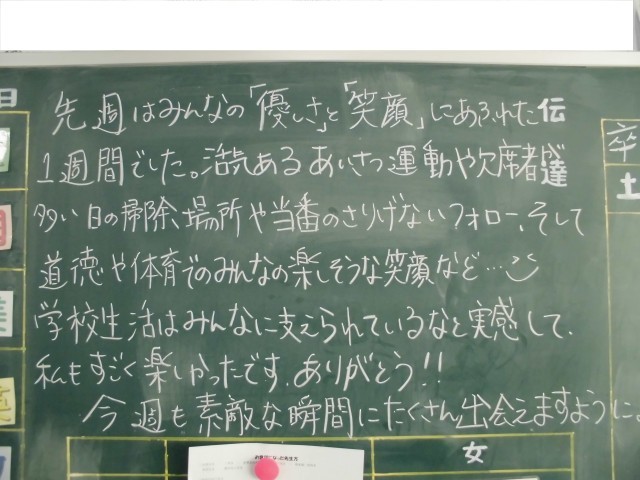 先週はみんなの「優しさ」と「笑顔」にあふれた
1週間でした。活気あるあいさつ運動や欠席者が
多い日の掃除場所や当番のさりげないフォロー、そして
道徳や体育でのみんなの楽しそうな笑顔など…
学校生活はみんなに支えられているなと実感して、
私もすごく楽しかったです。ありがとう!!
今週も素敵な瞬間にたくさん出会えますように。
伝達
日
卒
土
女